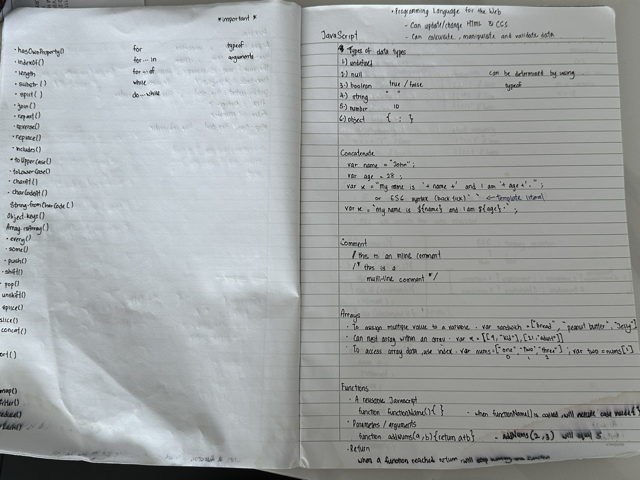 *important*
• hasOwnProperty()
• indexOf()
• length
• substr()
• split()
• join()
• repeat()
• reverse()
• replace()
• includes()
• toUpperCase()
• toLowerCase()
• charAt()
• charCodeAt()
String.fromCharCode()
Object.keys()
Array.isArray()
• every()
• some()
• push()
• shift()
• pop()
unshift()
splice()
slice()
concat()
for
for...in
for...of
while
do...while
typeof
arguments
• Programming Language for the Web
- Can update/change HTML & CSS
- Can calculate, manipulate and validate data
JavaScript
Types of data types
1.) undefined
2.) null
3.) boolean true / false
4.) string " "
5.) number 10
6.) object { : }
can be determined by using
typeof
Concatenate
var name = "John";
var age = 28;
var x = "My name is " + name + " and I am " + age + ".";
or ES6 syntax (back tick) ` ` ← Template literal
var x = `My name is ${name} and I am ${age}.`;
Comment
// this is an inline comment
/* this is a
multi-line comment */
Arrays
• To assign multiple value to a variable - var sandwich = ["bread", "peanut butter", "Jelly"]
• Can nest array within an array - var x =
• To access array data, use index - var nums = ["one" "two" "three"]; var two = nums[1]
0 1 2
Functions
• A reusable Javascript
function functionName() { } - when functionName() is called, will execute code inside { }
• Parameters / arguments
function addNums(a,b) {return a+b} - addNums(2,3) will 5
• Return
when a function reaches return, will stop